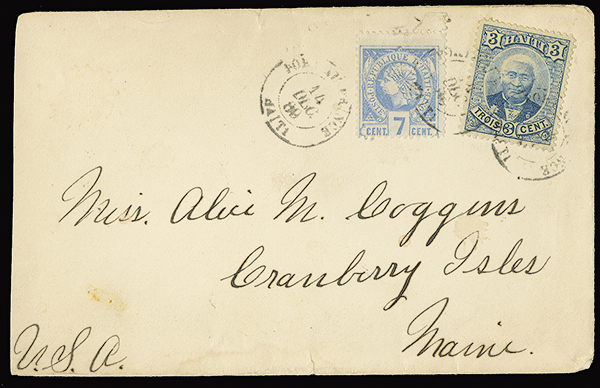 PORT AU PRINCE
14
DEC
89
HAITI
REPUBLIQUE D'HAITI
CENT. 7 CENT.
3 HAITI 3
TROIS 3 CENT.
Miss. Alice M. Coggins
Cranberry Isles
Maine.
U.S.A.